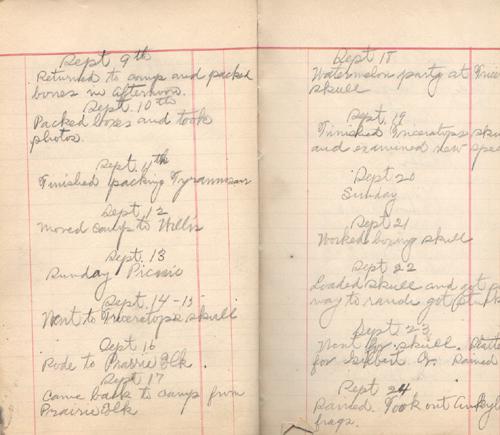 Sept 9th
Returned to camp and packed
bones in afternoon.
Sept. 10th
Packed boxes and took
photos.
Sept. 11th
Finished packing Tyrannosaur
Sept. 12
Moved camp to Willis
Sept. 13
Sunday Picnic
Sept. 14-15
Went to Triceratops skull
Sept 16
Rode to Prairie Elk.
Sept 17
Came back to camp from
Prairie Elk
Sept 18
Watermelon party at
skull
Sept. 19
Finished Triceratops
and examined new
Sept 20
Sunday
Sept 21
Worked boxing skull
Sept 22
Loaded skull and got
way to ranch got stuck
Sept 23
Went for skull.
for Gilbert Cr. Rained
Sept 24
Rained. Took out
frags.